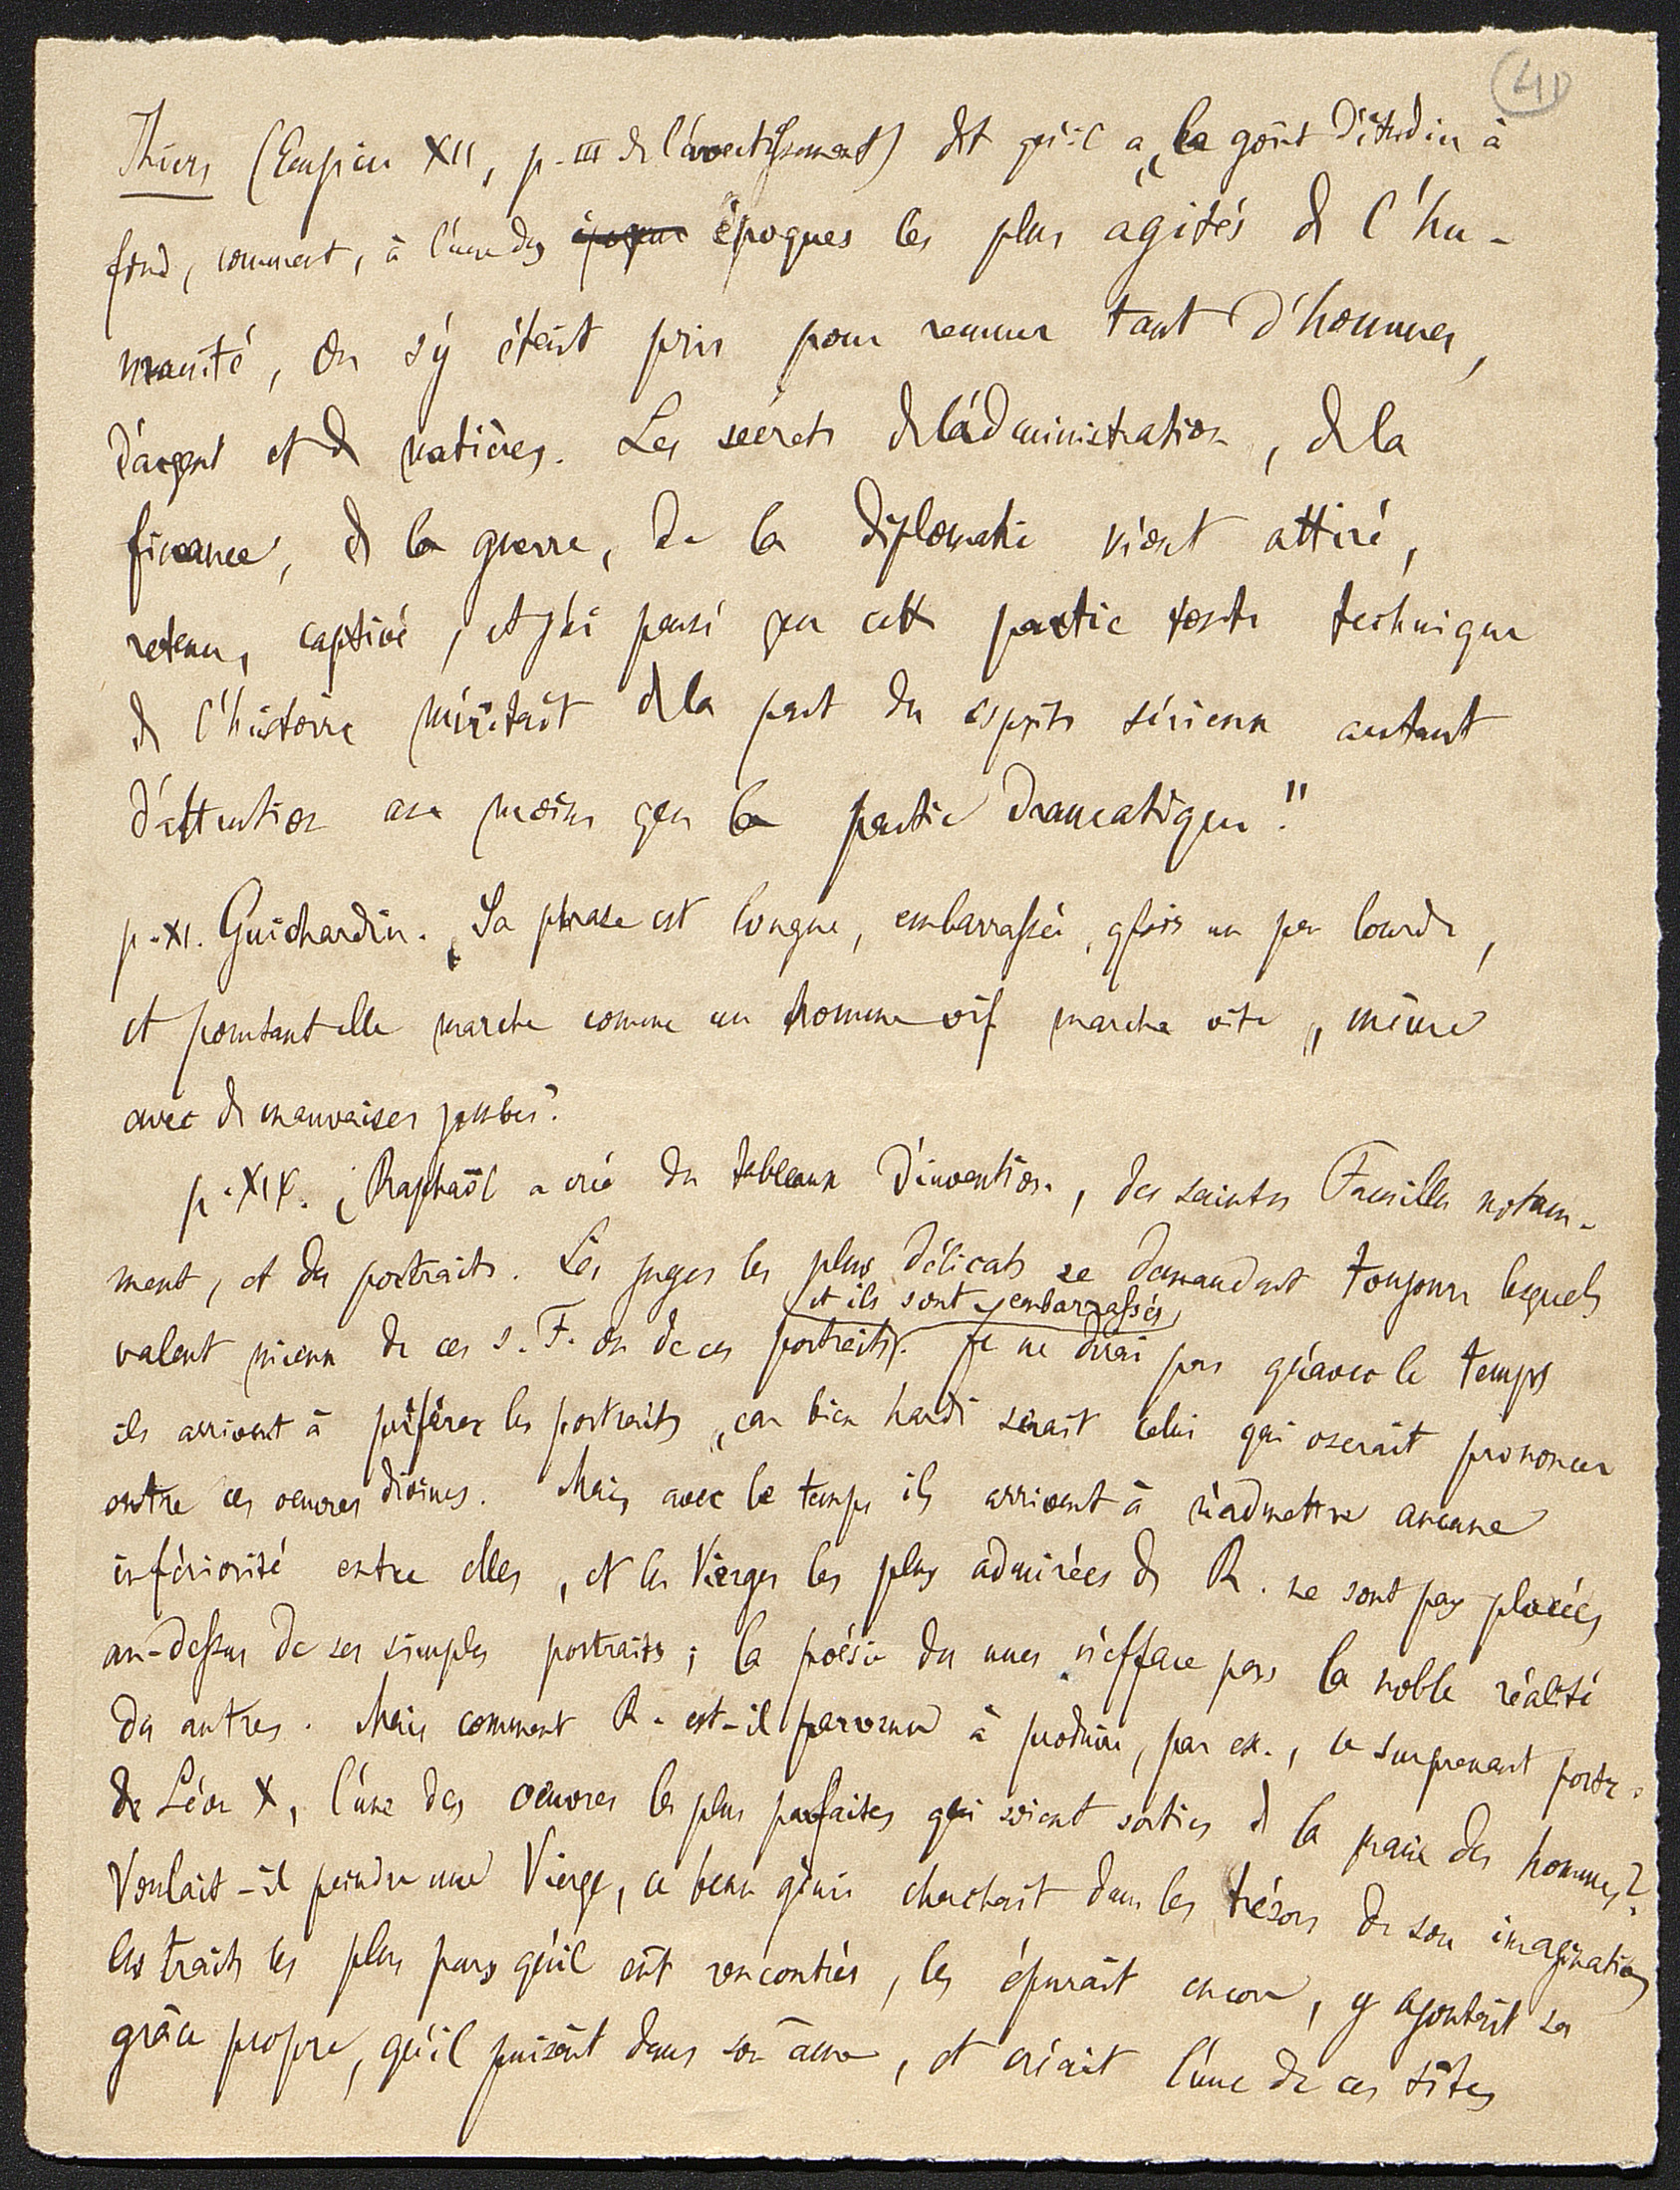 41
Thiers (Empire XII, p. III de l'avertissement) dit qu'il a „le goût d'étudier à
fond, comment, à l'une des époques les plus agités de l'hu-
manité, on s'y était pris pour remuer tant d'hommes,
d'argent et de matières. Les secrets de l'administration, de la
finance, de la guerre, de la diplomatie m'ont attiré,
retenu, captivé, et j'ai pensé que cette partie toute technique
de l'histoire méritait de la part des esprits sérieux autant
d'attention au moins que la partie dramatique."
p. XI. Guichardin. „Sa phrase est longue, embarrassée, qfois un peu lourde,
et pourtant elle marche comme un homme vif marche vite, même
avec de mauvaises jambes."
p. XIX. „Raphaël a créé des tableaux d'invention, des saintes Familles notam-
ment, et des portraits. Les juges les plus délicats se demandent toujours lesquels
et ils sont embarrassés
valent mieux de ces S. F. ou de ces portraits. Je ne dirai pas qu'avec le temps
ils arrivent à préférer les portraits, car bien hardi serait celui qui oserait prononcer
entre ces oeuvres divines. Mais avec le temps ils arrivent à n'admettre aucune
infériorité entre elles, et les Vierges les plus admirées de R. ne sont pas placées
au-dessus de ses simples portraits; la poésie des unes n'efface pas la noble réalité
des autres. Mais comment R. est-il parvenu à produire, par ex., ce surprenant portr.
de Léon X, l'une des oeuvres les plus parfaites qui soient sorties de la main des hommes?
Voulait-il peindre une Vierge, ce beau génie cherchait dans les trésors de son imagination
les traits les plus purs qu'il eût rencontrés, les épurait encore, y ajoutait sa
grâce propre, qu'il puisait dans son âme, et créait l'une de ces têtes